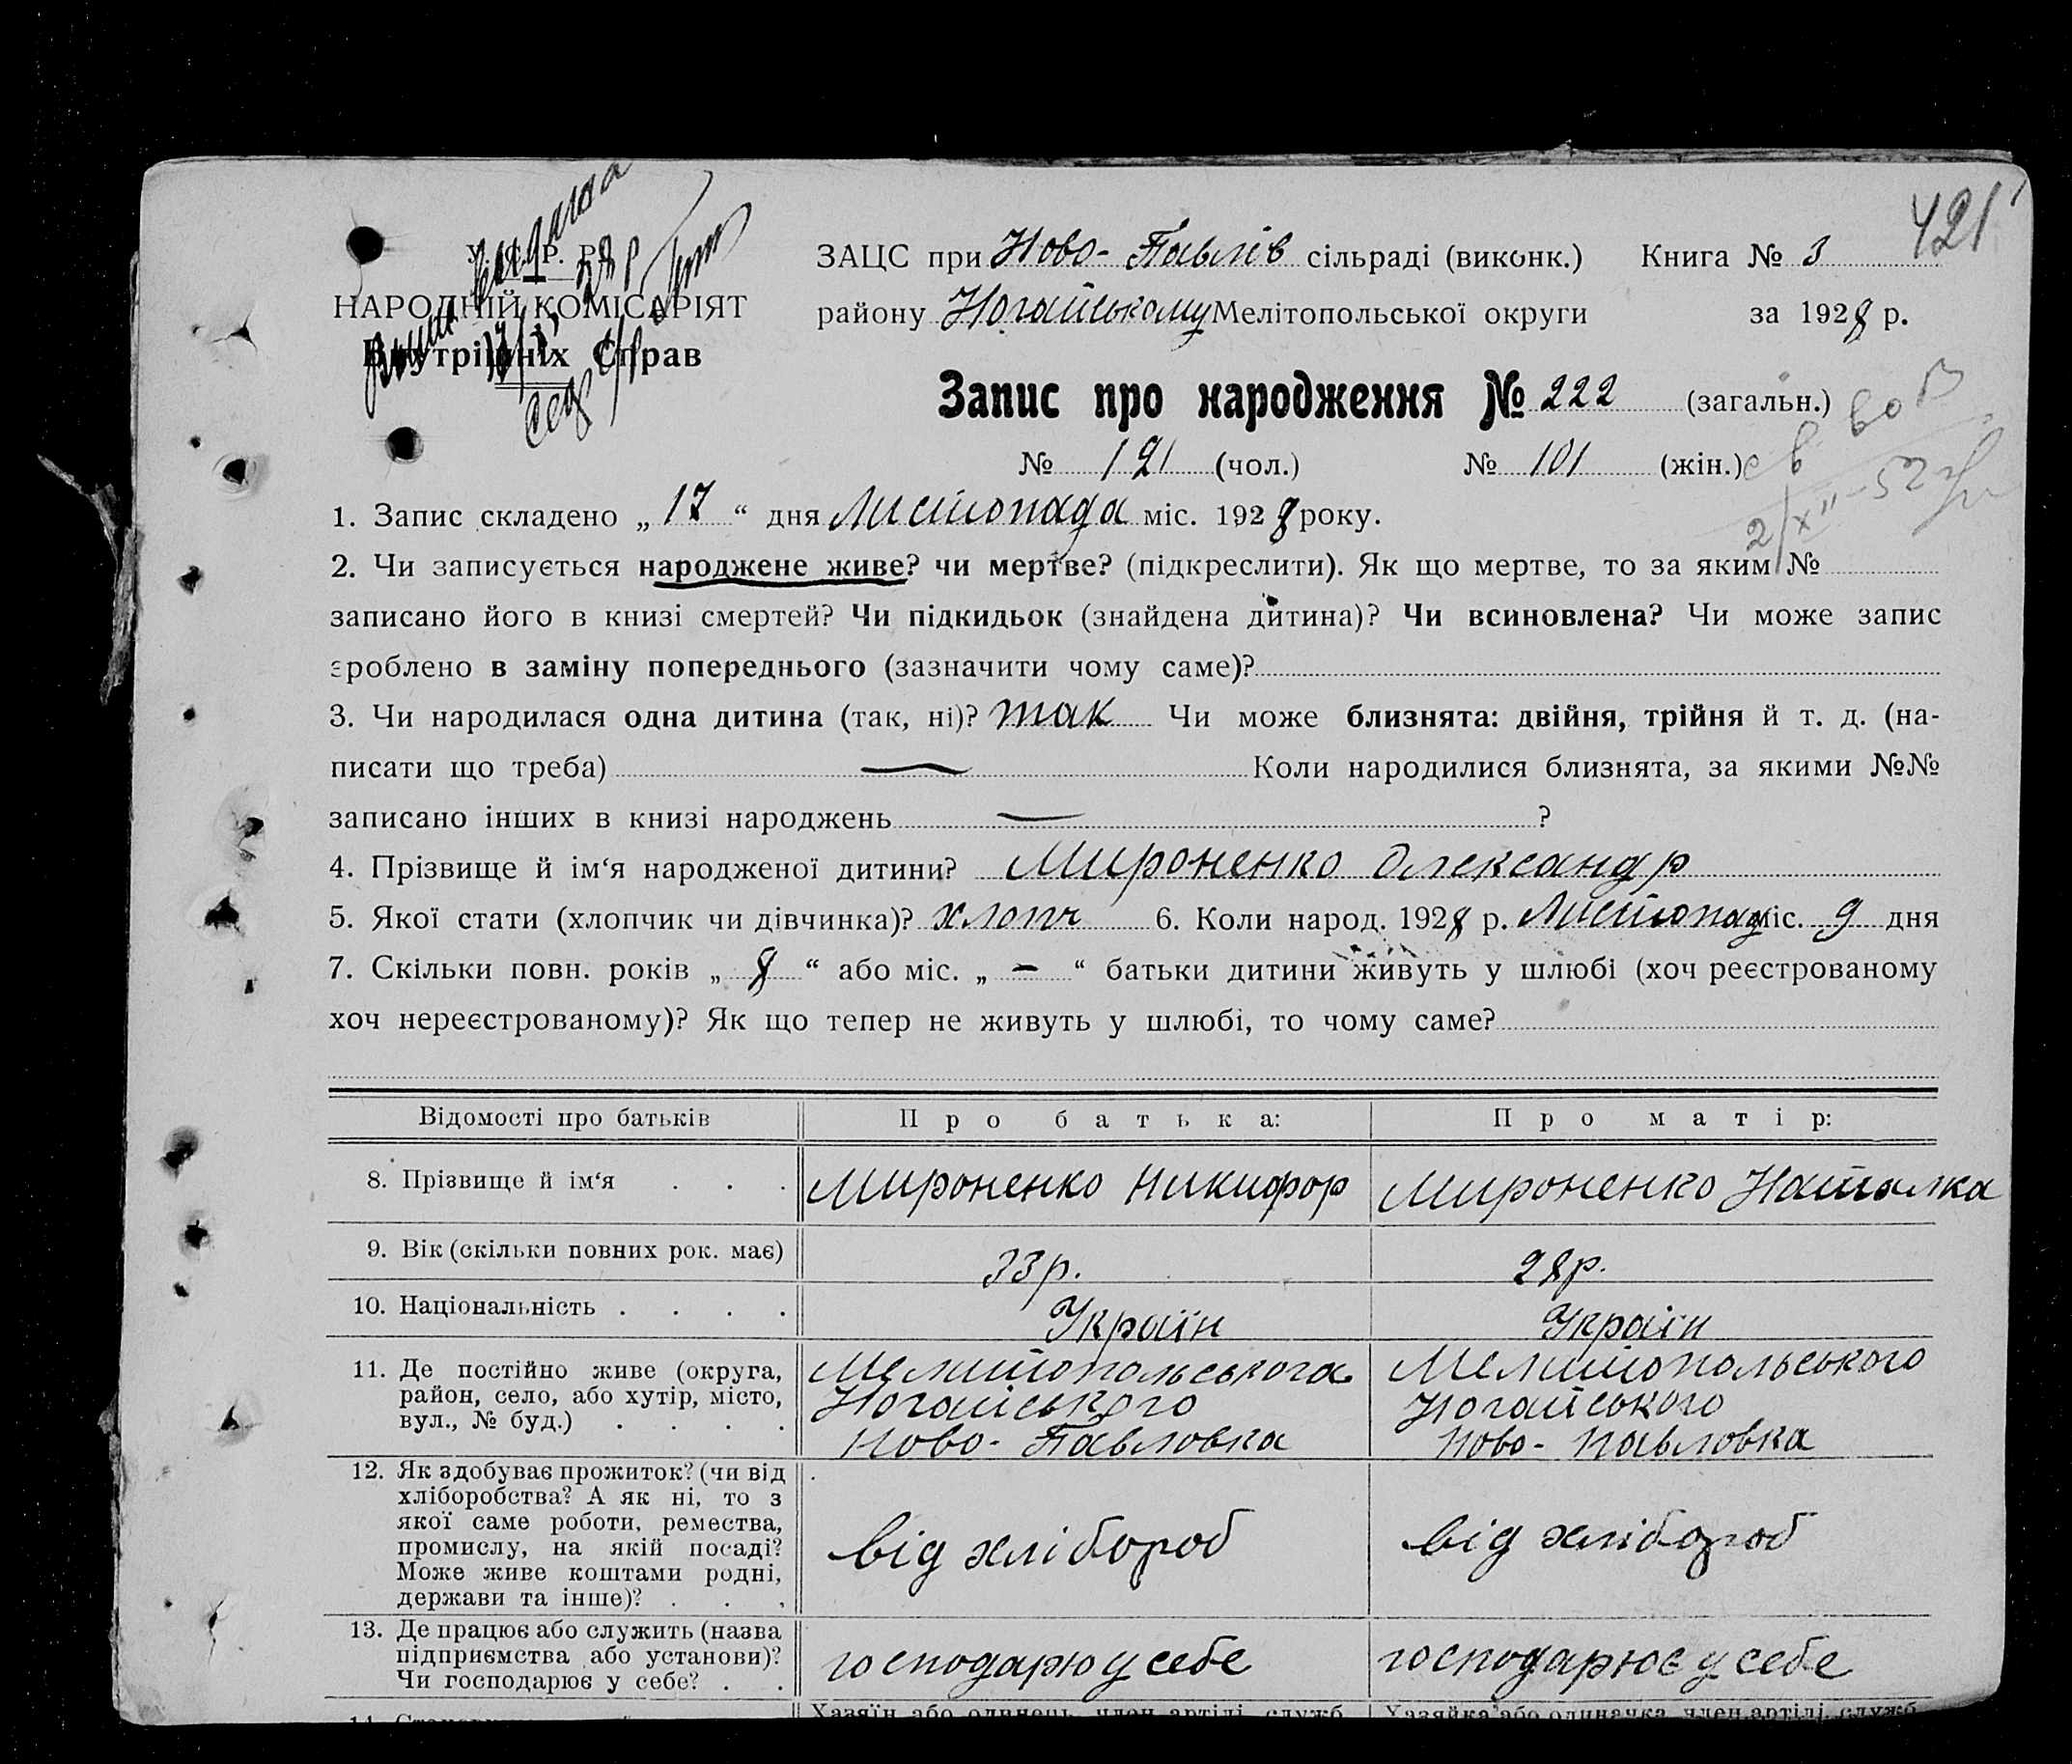 421
У. С. Р. Р.
НАРОДНІЙ КОМІСАРІЯТ
Внутрішніх Справ
ЗАЦС при Ново-Павлів сільраді (виконк.) Книга № 3
району Ногайському Мелітопольської округи за 1928 р.
Запис про народження № 222 (загальн.)
№ 121 (чол.) № 101 (жін.)
1. Запис складено „ 17 “ дня Листопада міс. 1928 року.
2. Чи записується народжене живе? чи мертве? (підкреслити). Як що мертве, то за яким №
записано його в книзі смертей? Чи підкидьок (знайдена дитина)? Чи всиновлена? Чи може запис
зроблено в заміну попереднього (зазначити чому саме)?
3. Чи народилася одна дитина (так, ні)? так Чи може близнята: двійня, трійня й т. д. (на-
писати що треба) — Коли народилися близнята, за якими №№
записано інших в книзі народжень — ?
4. Прізвище й ім‘я народженої дитини? Мироненко Олександр
5. Якої стати (хлопчик чи дівчинка)? хлопч 6. Коли народ. 1928 р. Листопад міс. 9 дня
7. Скільки повн. років „ 8 “ або міс. „ — “ батьки дитини живуть у шлюбі (хоч реєстрованому
хоч нереєстрованому)? Як що тепер не живуть у шлюбі, то чому саме?
Відомості про батьків Про батька: Про матір:
8. Прізвище й ім‘я . . . Мироненко Никифор Мироненко Наталка
9. Вік (скільки повних рок. має) 33 р. 28 р.
10. Національність . . . . Україн Україн
11. Де постійно живе (округа, Мелитопольського Мелитопольського
район, село, або хутір, місто, Ногайського Ногайського
вул., № буд.) . . . . Ново-Павловка Ново-Павловка
12. Як здобуває прожиток? (чи від
хліборобства? А як ні, то з
якої саме роботи, ремества,
промислу, на якій посаді? від хлібороб від хлібороб
Може живе коштами родні,
держави та інше)? . . .
13. Де працює або служить (назва
підприємства або установи)? господарює у себе господарює у себе
Чи господарює у себе? . .
Хазяїн або одинець, член артілі, служб. Хазяйка або одиначка, член артілі, служб.